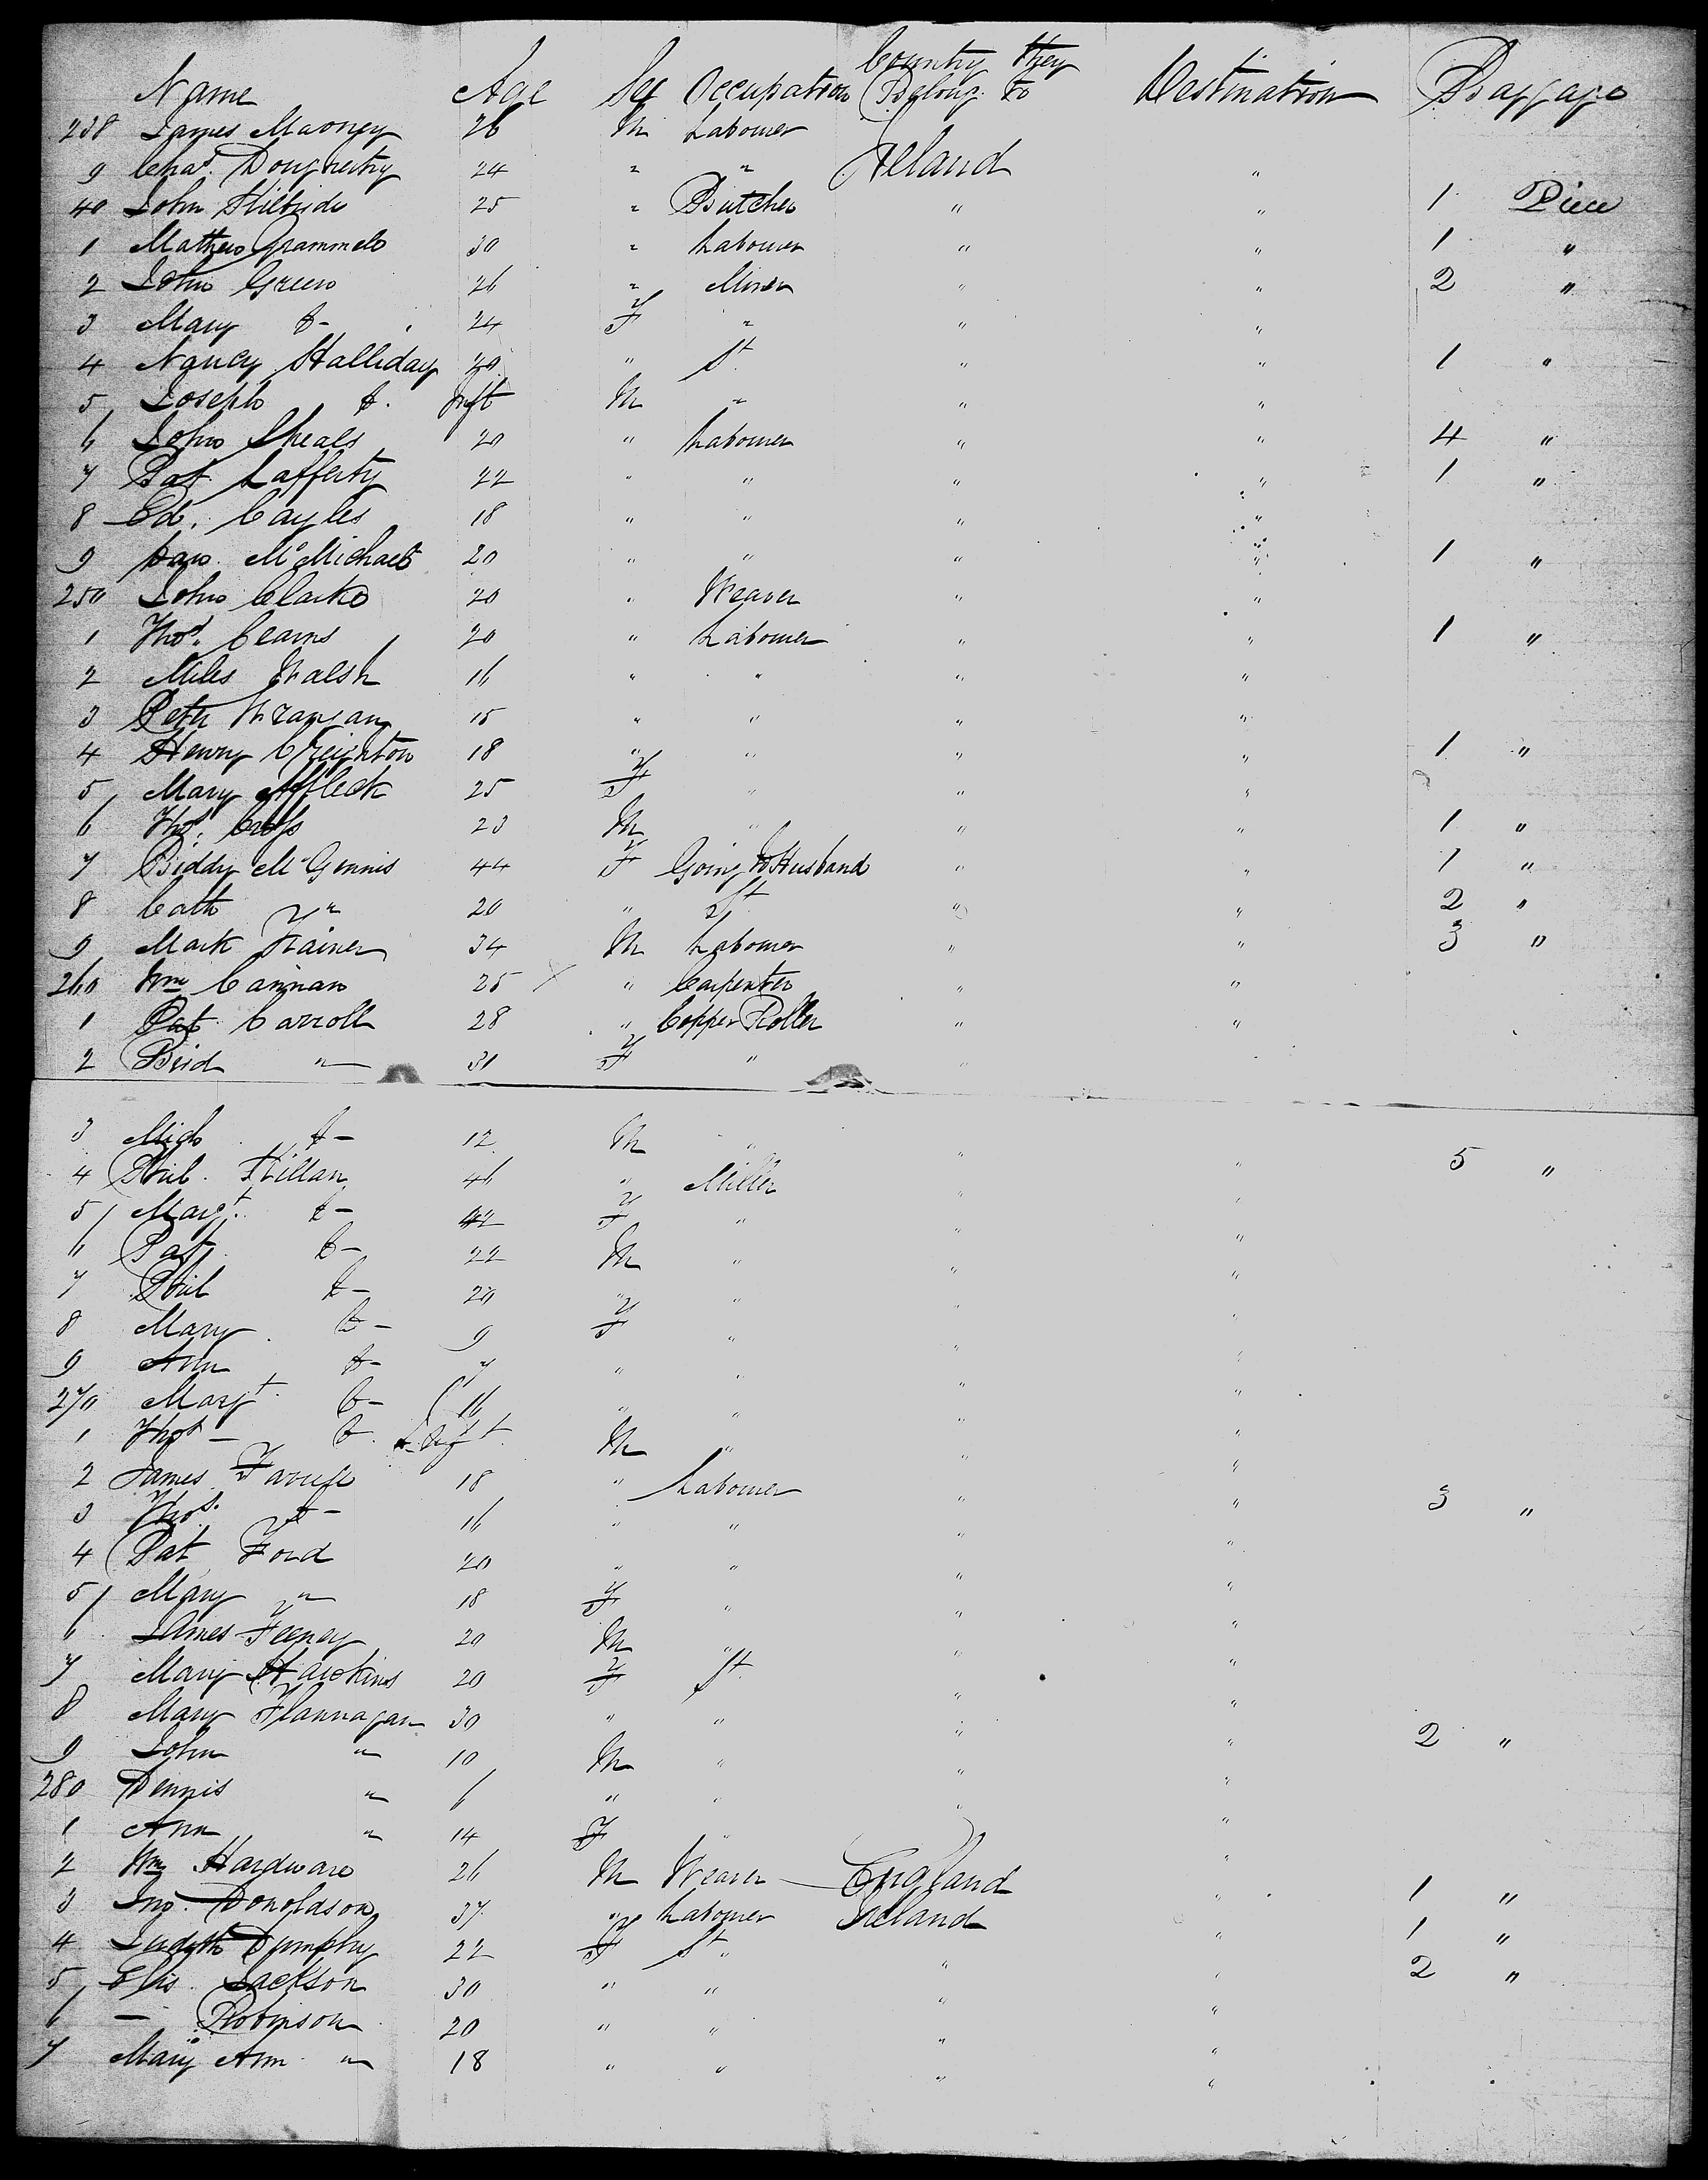 Name Age Sex Occupation Country they Belong to Destination Baggage
238 James Mavney 26 M Labourer
9 Chas. Dougherty 24 " " Ireland "
40 John Kilbride 25 " Butcher " " 1 Piece
1 Mathew Grammels 30 " Labourer " " 1 "
2 John Green 26 " Miner " " 2 "
3 Mary do- 24 F " " "
4 Nancy Halliday 20 " St " " 1 "
5 Joseph do. Inft M " " "
6 John Sheals 20 " Labourer " " 4 "
7 Pat Lafferty 22 " " " " 1 "
8 Ed. Cayles 18 " " " "
9 McMichael 20 " " " " 1 "
250 John Clarke 20 " Weaver " "
1 Thos. Cearns 20 " Labourer " " 1 "
2 Miles Walsh 16 " " " "
3 Peter 15 " " " "
4 Henry Creighton 18 " " " " 1 "
5 Mary Affleck 25 F " " "
6 Thos. Cross 23 M " " " 1 "
7 Biddy McGennis 44 F Going to Husband " " 1 "
8 Cath " 20 " St " " 2 "
9 Mark Trainer 34 M Labourer " " 3 "
260 Wm Cannan 25 " Carpenter " "
1 Pat Carroll 28 " Copper Roller " "
2 Brid " 31 F " "
3 Mich do- 12 M " " " 5 "
4 Phil. Killan 46 " Miller " "
5 Margt. do- 42 F " " "
6 Pat do- 22 M " " "
7 Phil do- 20 " " " "
8 Mary do- 9 F " " "
9 Ann do- 7 " " " "
270 Margt. do- 16 " " " "
1 Thos- do. Inft. M " " "
2 James 18 " Labourer " " 3 "
3 Thos. do- 16 " " " "
4 Pat Ford 20 " " " "
5 Mary " 18 F " " "
6 James Feeney 20 M " " "
7 Mary Hawkins 20 F St " "
8 Mary Flannagan 30 " " " " 2 "
9 John " 10 M " " "
280 Dennis " 6 " " " "
1 Ann " 14 F " "
2 Wm Hardware 26 M Weaver England " 1 "
3 Jno. Donoldson 37 " Labourer Ireland " 1 "
4 Judith Dumphy 22 F St " " " 2 "
5 Elis. Jackson 30 " " " "
6 — Robinson 20 " " " "
7 Mary Ann " 18 " " " "